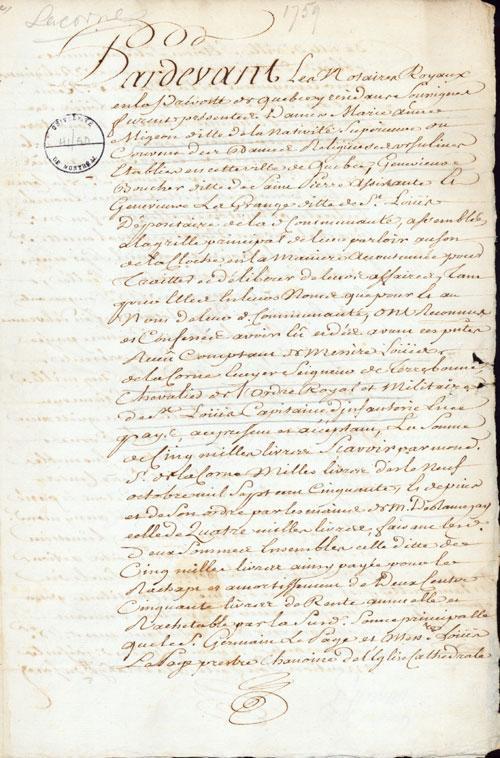 Lacorne
1759
Pardevant Les Notaires Royaux
en la Prévosté de Quebec y residans Soussignes
furent présentes Dames Marie anne
Migeon ditte de la Nativité Superieure du
Couvent des Dames Religieuses ursulines
Etablies en cette ville de Quebec, Genevieve
Boucher ditte de Saint Pierre assistante Et
Genevieve La Grange ditte de St. Louis
Dépositaire de la de Communauté, assemblées
a la grille principal de leur parloir au son
de la Cloche en la Maniere accoutumée pour
Traitter et déliberer de leurs affaires, Tant
pour Elles En leurs Noms que pour et au
Nom de leur de Communauté, ont Reconnu
et Confessé avoir cy avant ces
Reçu Comptant de Messire Loüis
de la Corne Ecuyer Seigneur de Terrebonne
Chevalier de l'Ordre Royal et Militaire
de St. Loüis Capitaine d'infanterie En ce
païs, a ce present et acceptant, La Somme
de Cinq milles livres Scavoir par mond.
Sr. de la Corne Milles livres dès le Neuf
octobre mil Sept cent Cinquante, Et depuis
et de Son ordre par les mains de M. Desbaunays
celle de Quatre milles livres, faisant les
Deux Sommes Ensembles celle ditte de
Cinq milles livres ainsy payée pour le
Rachapt et amortissement de Deux Cents
Cinquante livres de Rente annuelle et
Rachetable par la Susd. Somme principalle
que le Sr. Germain Le Page et Mre Loüis
Le Page prestre Chanoine de l'Eglise Cathedralle
DE MONTRÉAL